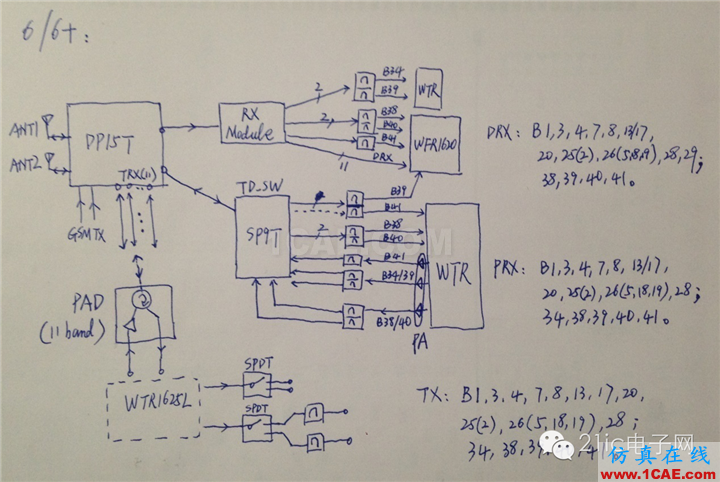 6/6+:
ANT1
ANT2
DP15T
TRX(11)
GSMTX
PAD
(11 band)
WTR1625L
SPDT
SPDT
RX
Module
2
2
11
DRX
B34
B39
B38
B40
B41
WTR
WFR1620
TD_SW
SP9T
2
B39
B41
B38
B40
B41
B34/39
B38/40
PA
WTR
DRX: B1,3,4,7,8,13/17,
20,25(2),26(5,18,9),28,29;
38,39,40,41。
PRX: B1,3,4,7,8,13/17,
20,25(2),26(5,18,19),28;
34,38,39,40,41。
TX: B1,3,4,7,8,13,17,20,
25(2),26(5,18,19),28;
34,38,39
1CAE.COM
21ic电子网
仿真在线
www.1CAE.com